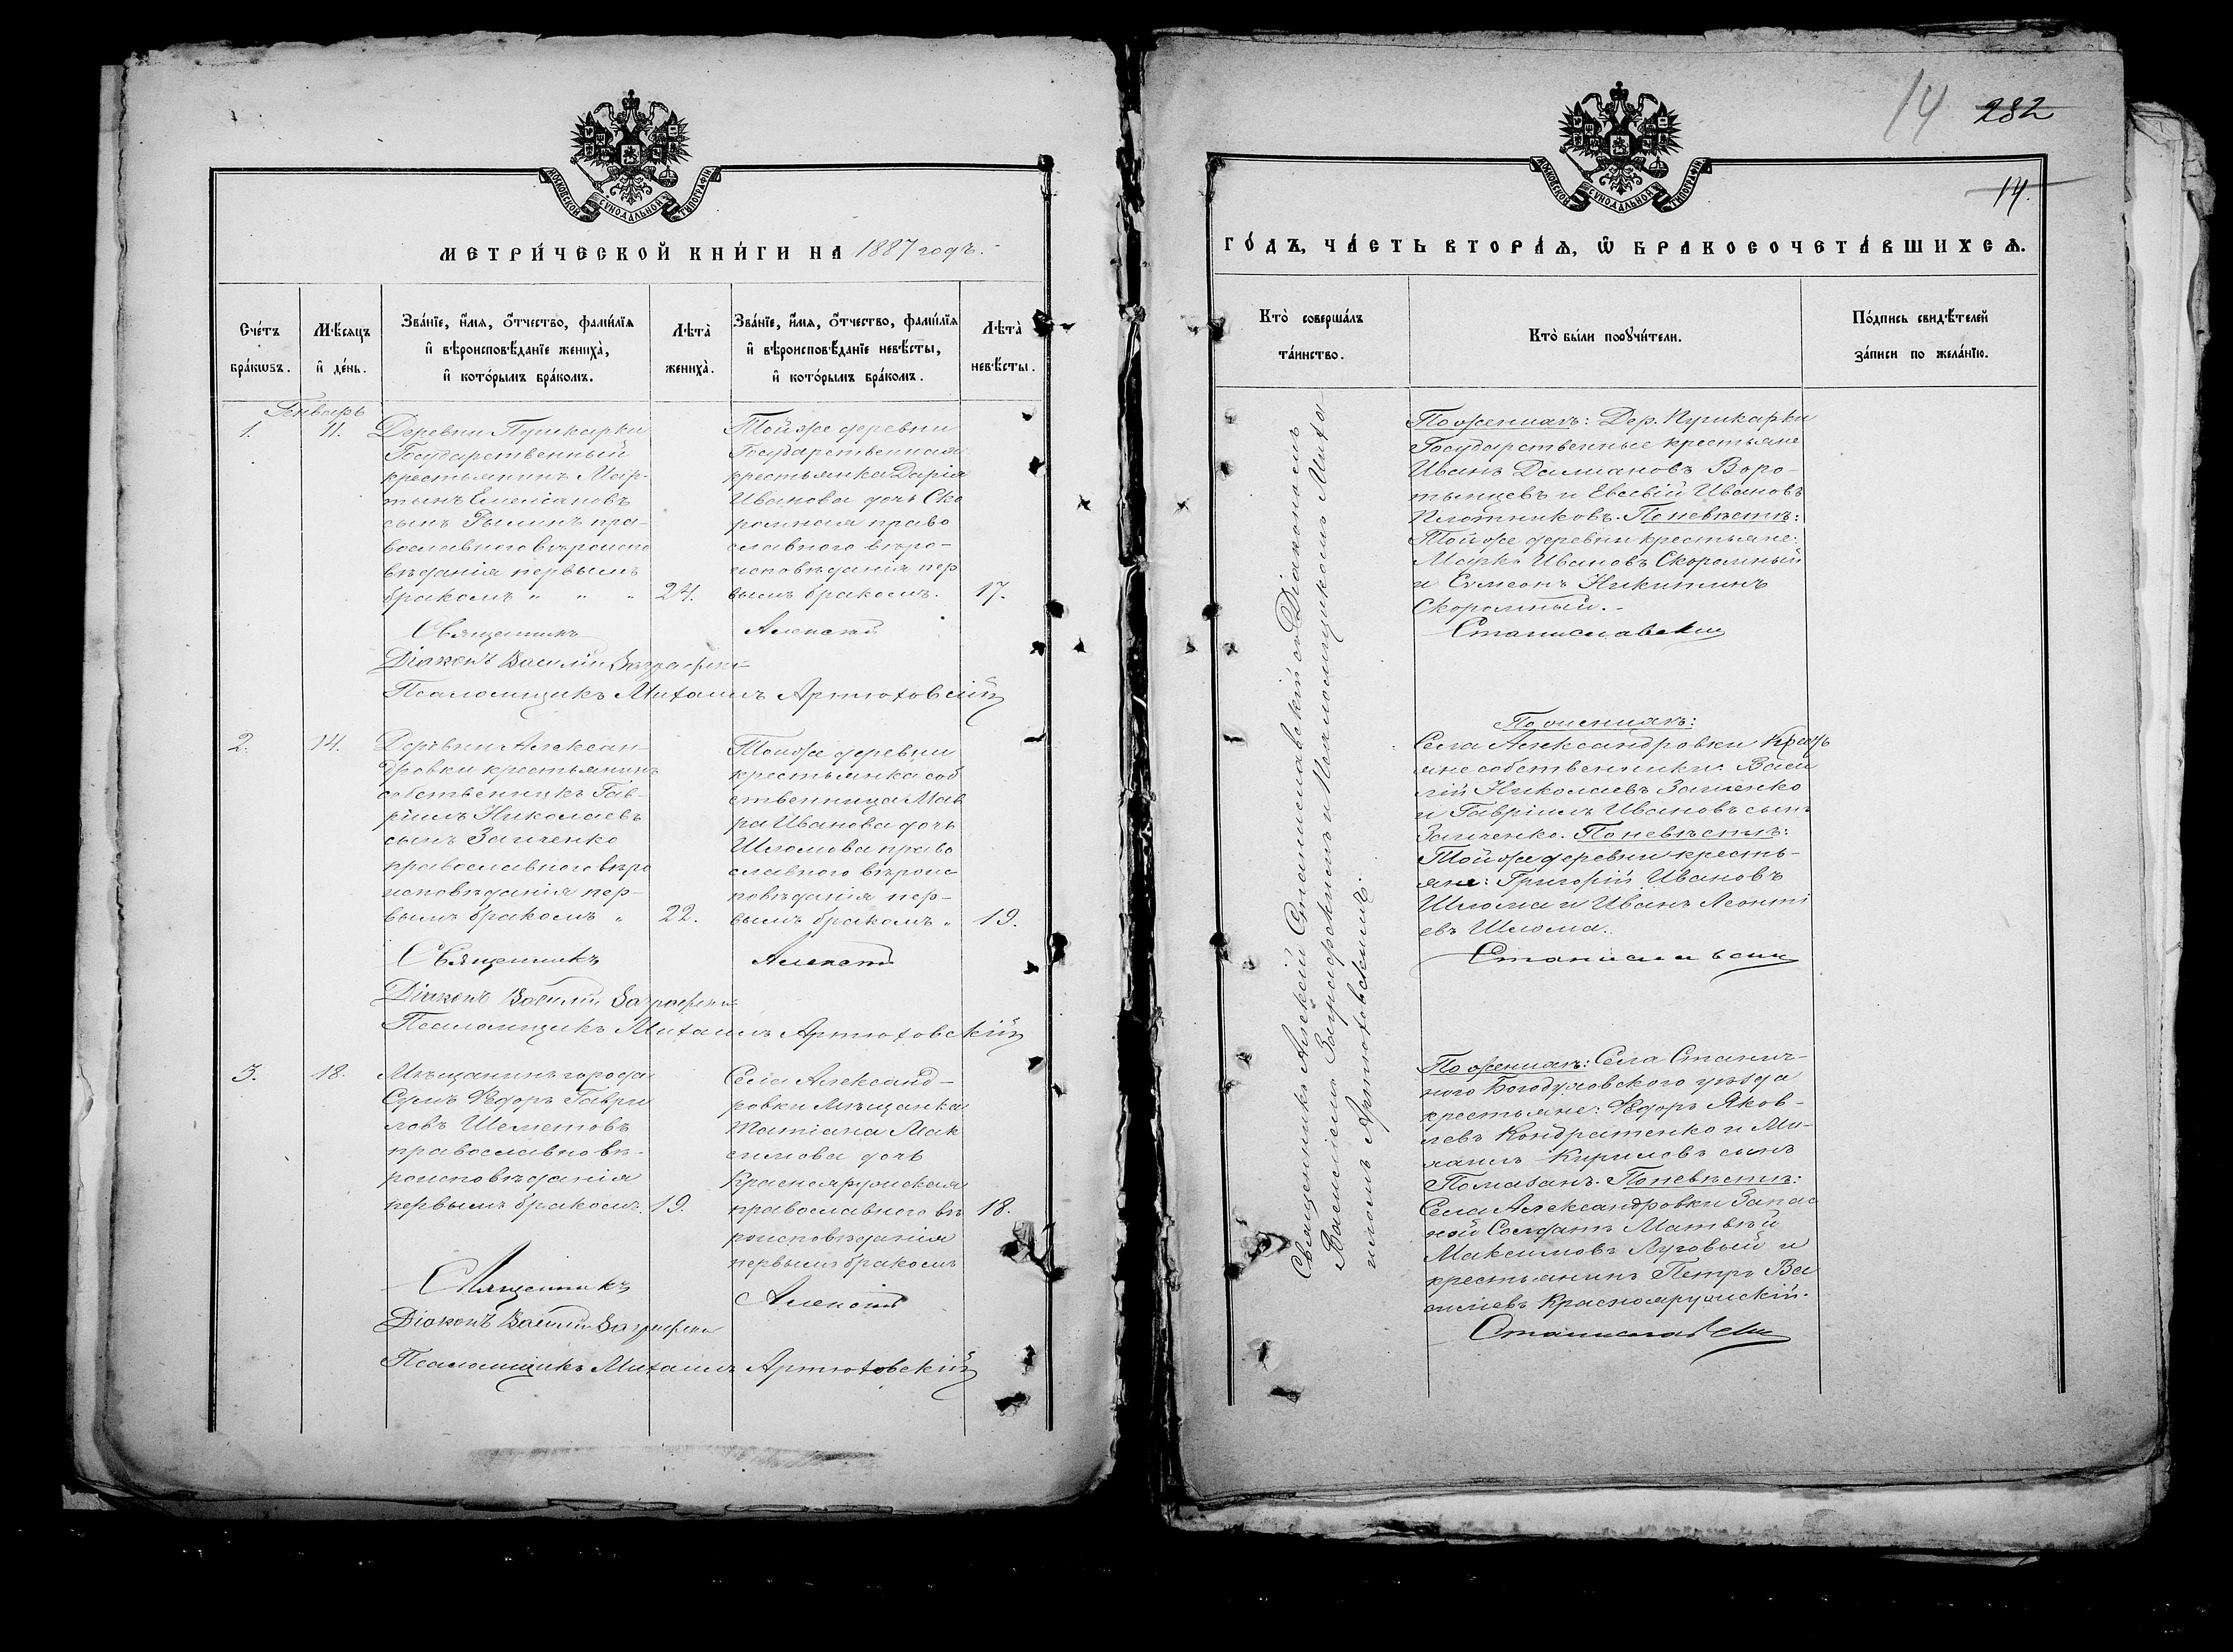 МОСКОВСКОЙ СѴНОДАЛЬНОЙ ТИПОГРАФІИ
МЕТРИ́ЧЕСКОЙ КНИ́ГИ НА 1887 годъ.
Сче́тъ бра́кѡвъ.
Мѣ́сяцъ и҆ де́нь.
Зва́нїе, и҆́мя, ѻ҆́тчество, фами́лїя
и҆ вѣроисповѣ́данїе жениха̀,
и҆ кото́рымъ бра́комъ.
Лѣта̀
жениха̀.
Зва́нїе, и҆́мя, ѻ҆́тчество, фами́лїя
и҆ вѣроисповѣ́данїе невѣ́сты,
и҆ кото́рымъ бра́комъ.
Лѣта̀
невѣ́сты.
Генварь
1.
11.
Деревни Пушкарки
Государственный
крестьянинъ Мар-
тынъ Емельяновъ
сынъ Рылинъ пра-
вославного вѣроиспо
вѣданія первымъ
бракомъ " " "
24.
Той же деревни
Государственная
крестьянка Дарія
Иванова дочь Ско
ромная право
славного вѣро-
исповѣданія пер
вымъ бракомъ.
17.
Священникъ Алексѣй
Діаконъ Василій
Псаломщикъ Михаилъ Артюховскій
2.
14.
Деревни Александ-
ровки крестьянинъ
собственникъ Гав-
ріилъ Николаевъ
сынъ Заиченко
православного вѣро
исповѣданія пер-
вымъ бракомъ "
22.
Той же деревни
крестьянка соб
ственница Мав
ра Иванова дочь
Шломова право
славного вѣроис
повѣданія пер-
вымъ бракомъ "
19.
Священникъ Алексѣй
Діаконъ Василій
Псаломщикъ Михаилъ Артюховскій
3.
18.
Мѣщанинъ города
Сумъ Ѳедоръ Гаври
ловъ Шеметовъ
православно вѣ-
роисповѣданія
первымъ бракомъ.
19.
Села Александ-
ровки мѣщанка
Татіана Мак
симова дочь
Краснояружская
православного вѣ
роисповѣданія
первымъ бракомъ
18.
Священникъ Алексѣй
Діаконъ Василій
Псаломщикъ Михаилъ Артюховскій
14 282
14.
МОСКОВСКОЙ СѴНОДАЛЬНОЙ ТИПОГРАФІИ
ГО́ДЪ, ЧА́СТЬ ВТОРА́Я, Ѽ БРАКОСОЧЕТА́ВШИХСЯ.
Кто̀ соверша́лъ
та́инство.
Кто̀ бы́ли порꙋчи́тели.
По́дпись свидѣ́телей
за́писи по жела́нїю.
Священникъ Алексѣй Станиславскій съ Діакономъ
Василіемъ и Псаломщикомъ Миха
иломъ Артюховскимъ.
По женихѣ: Дер. Пушкарки
Государственные крестьяне
Иванъ Даміановъ Воро-
тынцевъ и Евсевій Ивановъ
Плотниковъ. По невѣстѣ:
Той же деревни крестьяне:
Марко Ивановъ Скоромный
и Сѵмеонъ Никитинъ
Скоромный.-
Станиславскій
По женихѣ:
Села Александровки кресть
яне собственники: Васи
лій Николаевъ Заиченко
и Гавріилъ Ивановъ сынъ
Заиченко. По невѣстѣ:
Той же деревни кресть-
яне: Григорій Ивановъ
Шлома и Иванъ Леонті
евъ Шлома.
Станиславскій
По женихѣ: Села Станич-
ного Богодуховского уѣзда
крестьяне: Ѳедоръ Яков-
левъ Кондратенко и Ми-
хаилъ Кириловъ сынъ
Помазанъ. По невѣстѣ:
Села Александровки Запас
ной Солдатъ Матвѣй
Максимовъ Луговый и
крестьянинъ Петръ Ва
сильевъ Краснояружскій.
Станиславскій